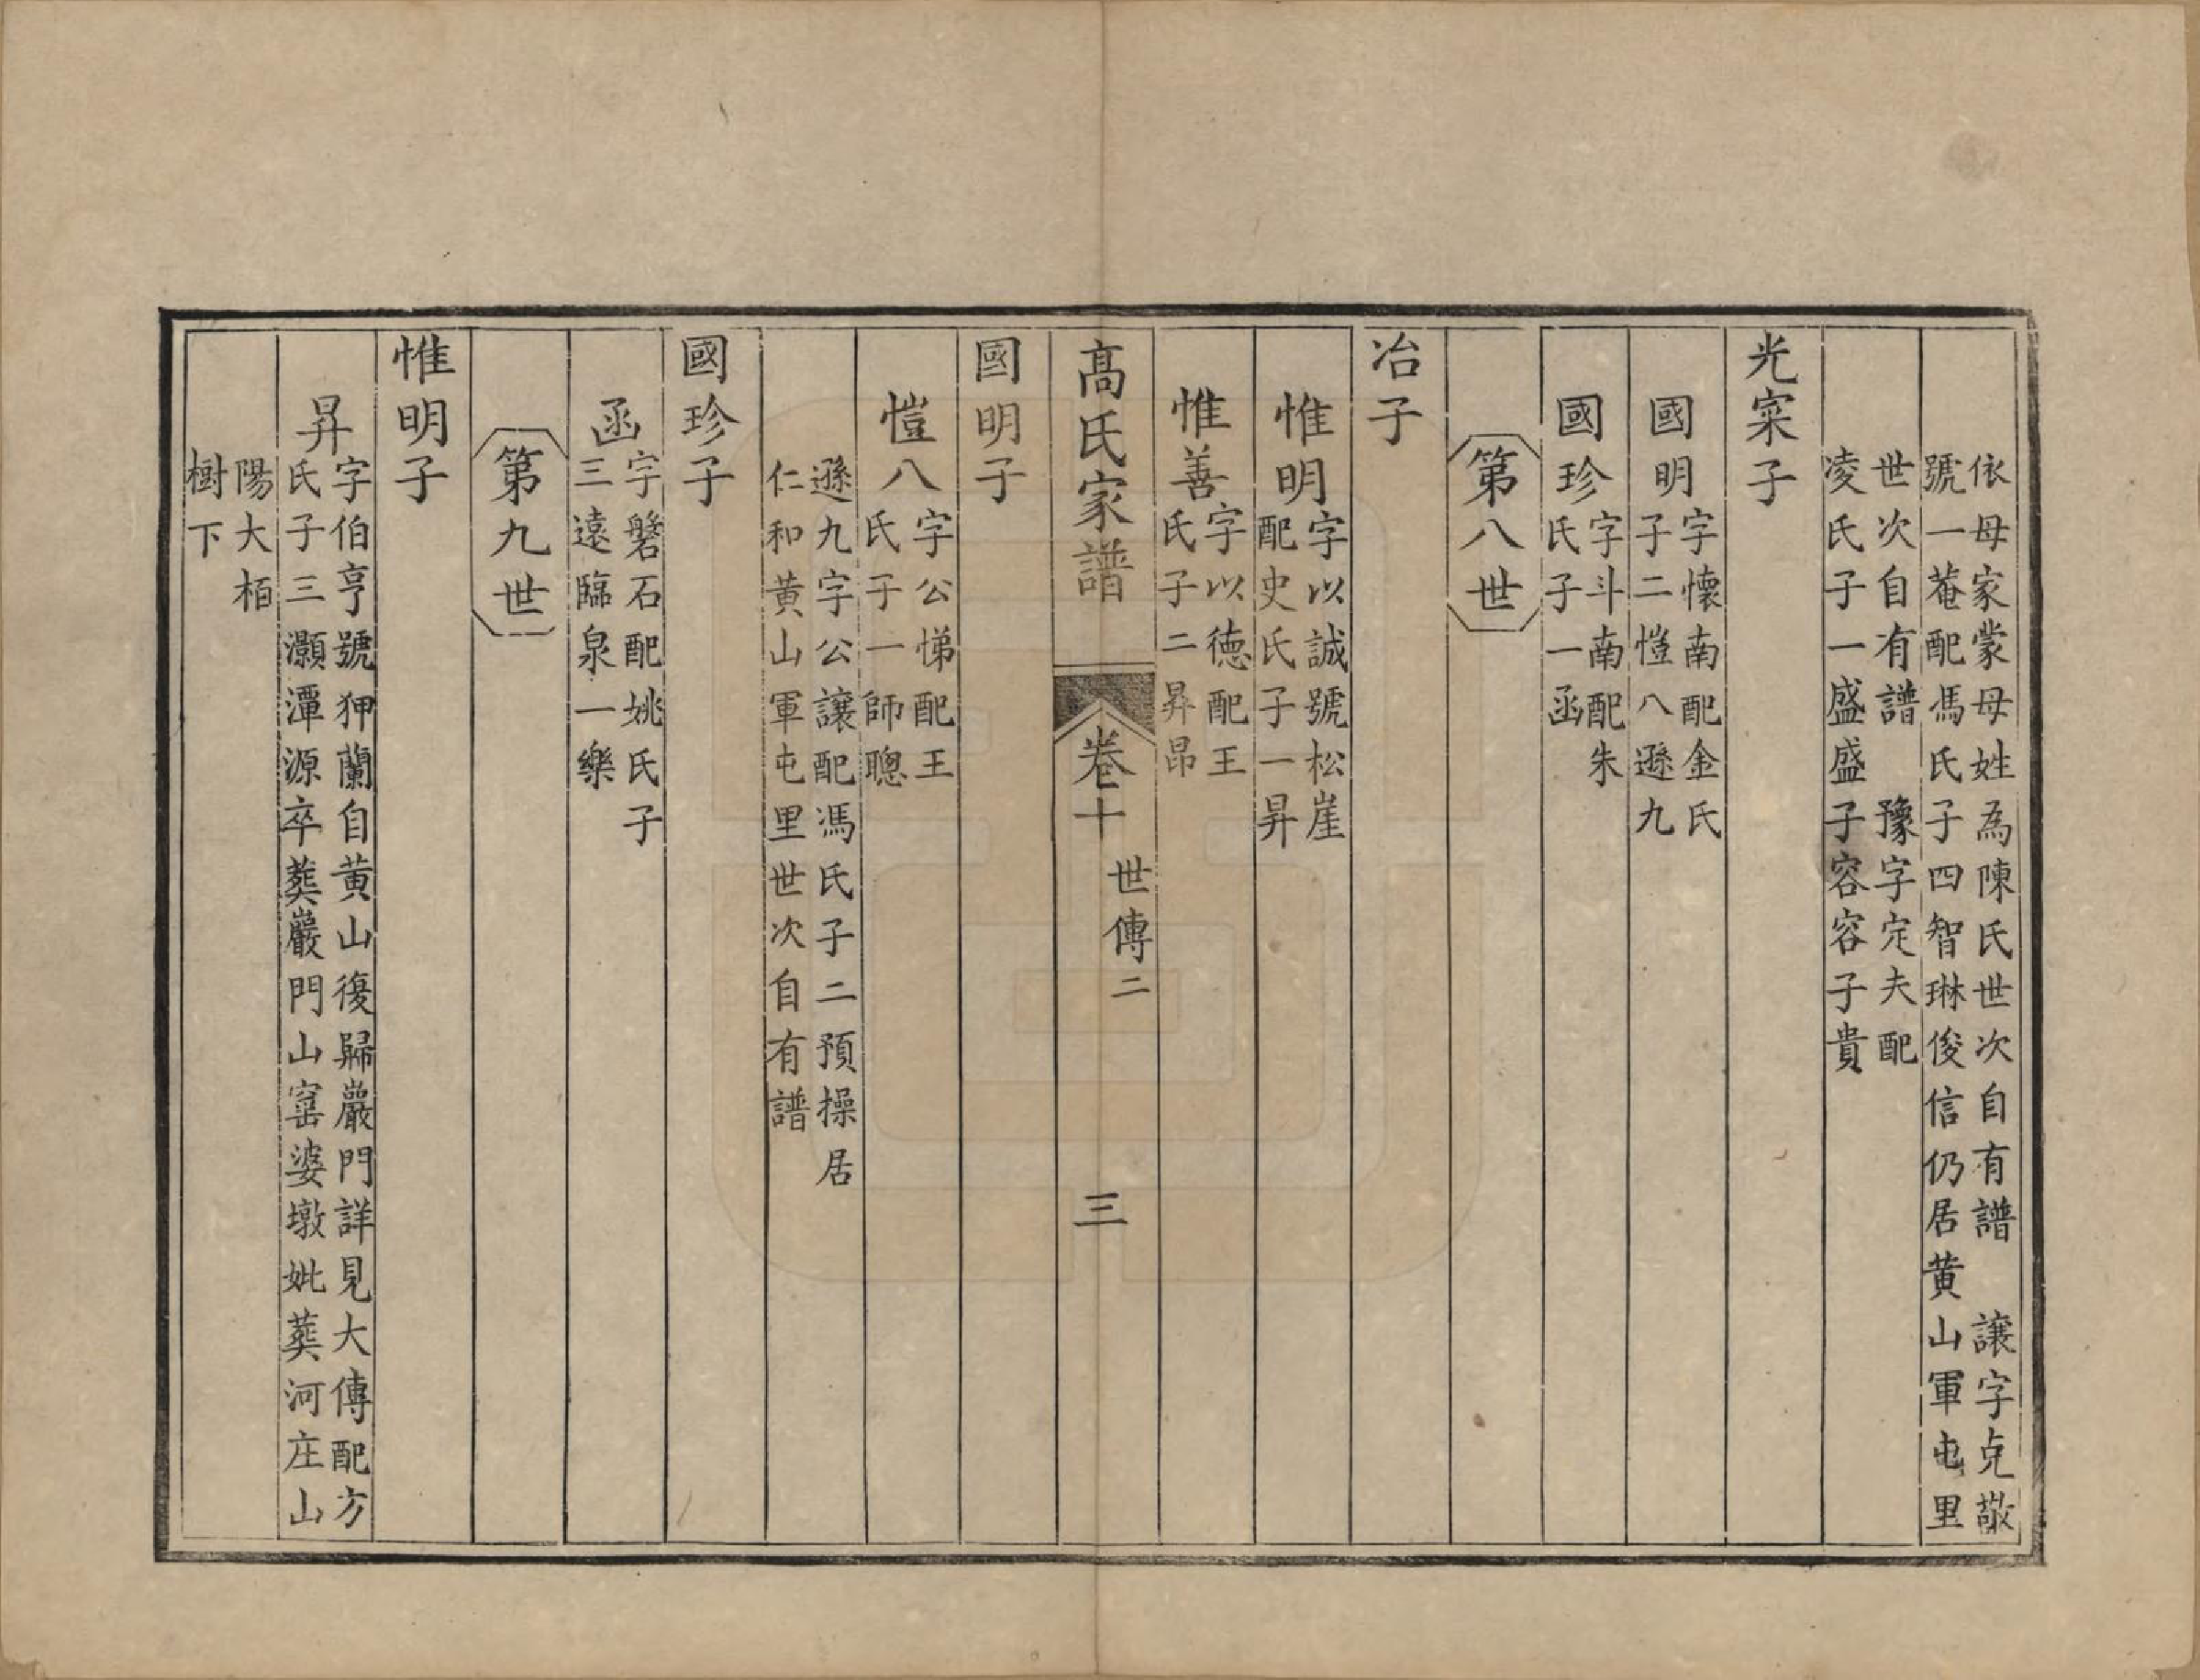 依母家蒙母姓為陳氏世次自有譜　讓字克敬
號一菴配馮氏子四智琳俊信仍居黃山軍屯里
世次自有譜　豫字定夫配
凌氏子一盛盛子容容子貴
光寀子
國明字懷南配金氏
子二愷八遜九
國珍字斗南配朱
氏子一函
第八世
冶子
惟明字以誠號松崖
配史氏子一昇
惟善字以德配王
氏子二昇昂
高氏家譜　卷十　世傳二　三
國明子
愷八字公悌配王
氏子一師聰
遜九字公讓配馮氏子二預操居
仁和黃山軍屯里世次自有譜
國珍子
函字磐石配姚氏子
三遠臨泉一樂
第九世
惟明子
昇字伯亨號狎蘭自黃山復歸巖門詳見大傳配方
氏子三灝潭源卒葬巖門山窑婆墩妣葬河庄山
陽大栢
樹下